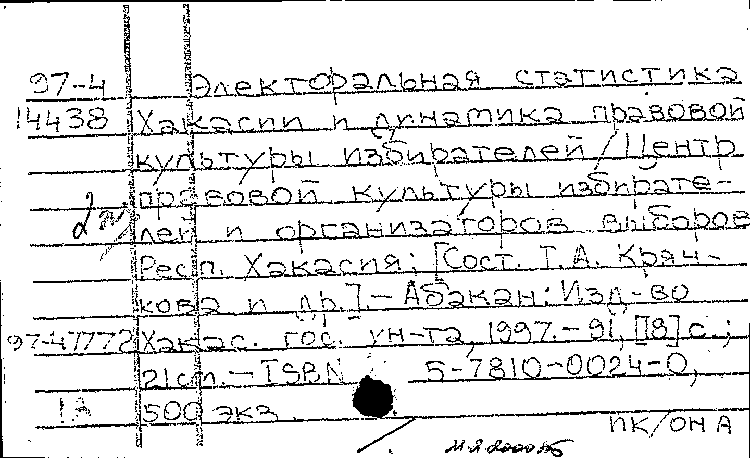 97-4 Электоральная статистика
14438 Хакасии и динамика правовой
культуры избирателей / Центр
правовой культуры избирате-
лей и организаторов выборов
Респ. Хакасия; [Сост. Т.А. Кряч-
кова и др.]. - Абакан: Изд-во
97-47772 Хакас. гос. ун-та, 1997. - 91, [18] с.;
21 см. - ISBN 5-7810-0024-0,
500 экз.
ПК/ОН А